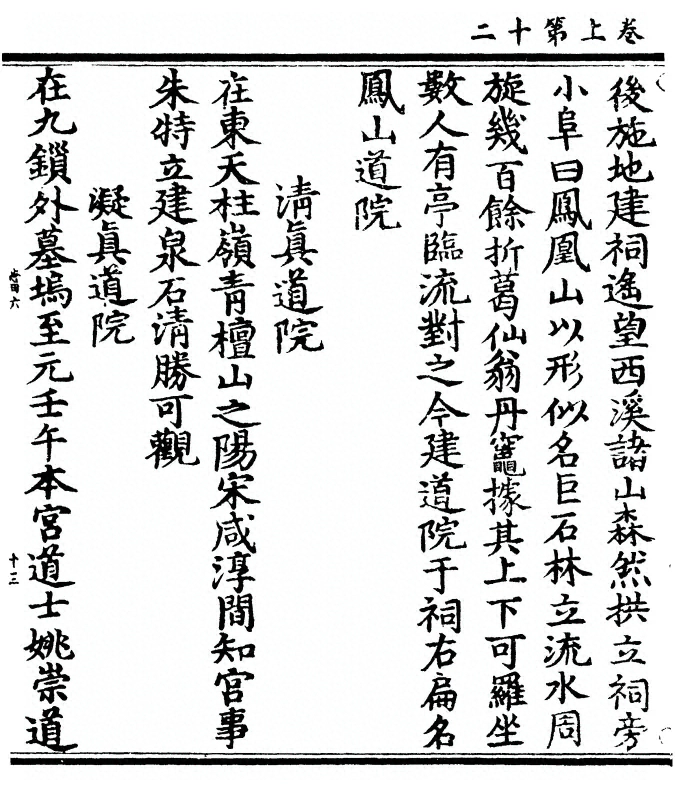 卷上第十二
後施地建祠遙望西溪諸山森然拱立祠旁
小阜曰鳳凰山以形似名巨石林立流水周
旋幾百餘折葛仙翁丹竈據其上下可羅坐
數人有亭臨流對之今建道院于祠右扁名
鳳山道院
清真道院
在東天柱嶺青檀山之陽宋咸淳間知官事
朱特立建泉石清勝可觀
凝真道院
在九鎖外墓塢至元壬午本宮道士姚崇道
十三